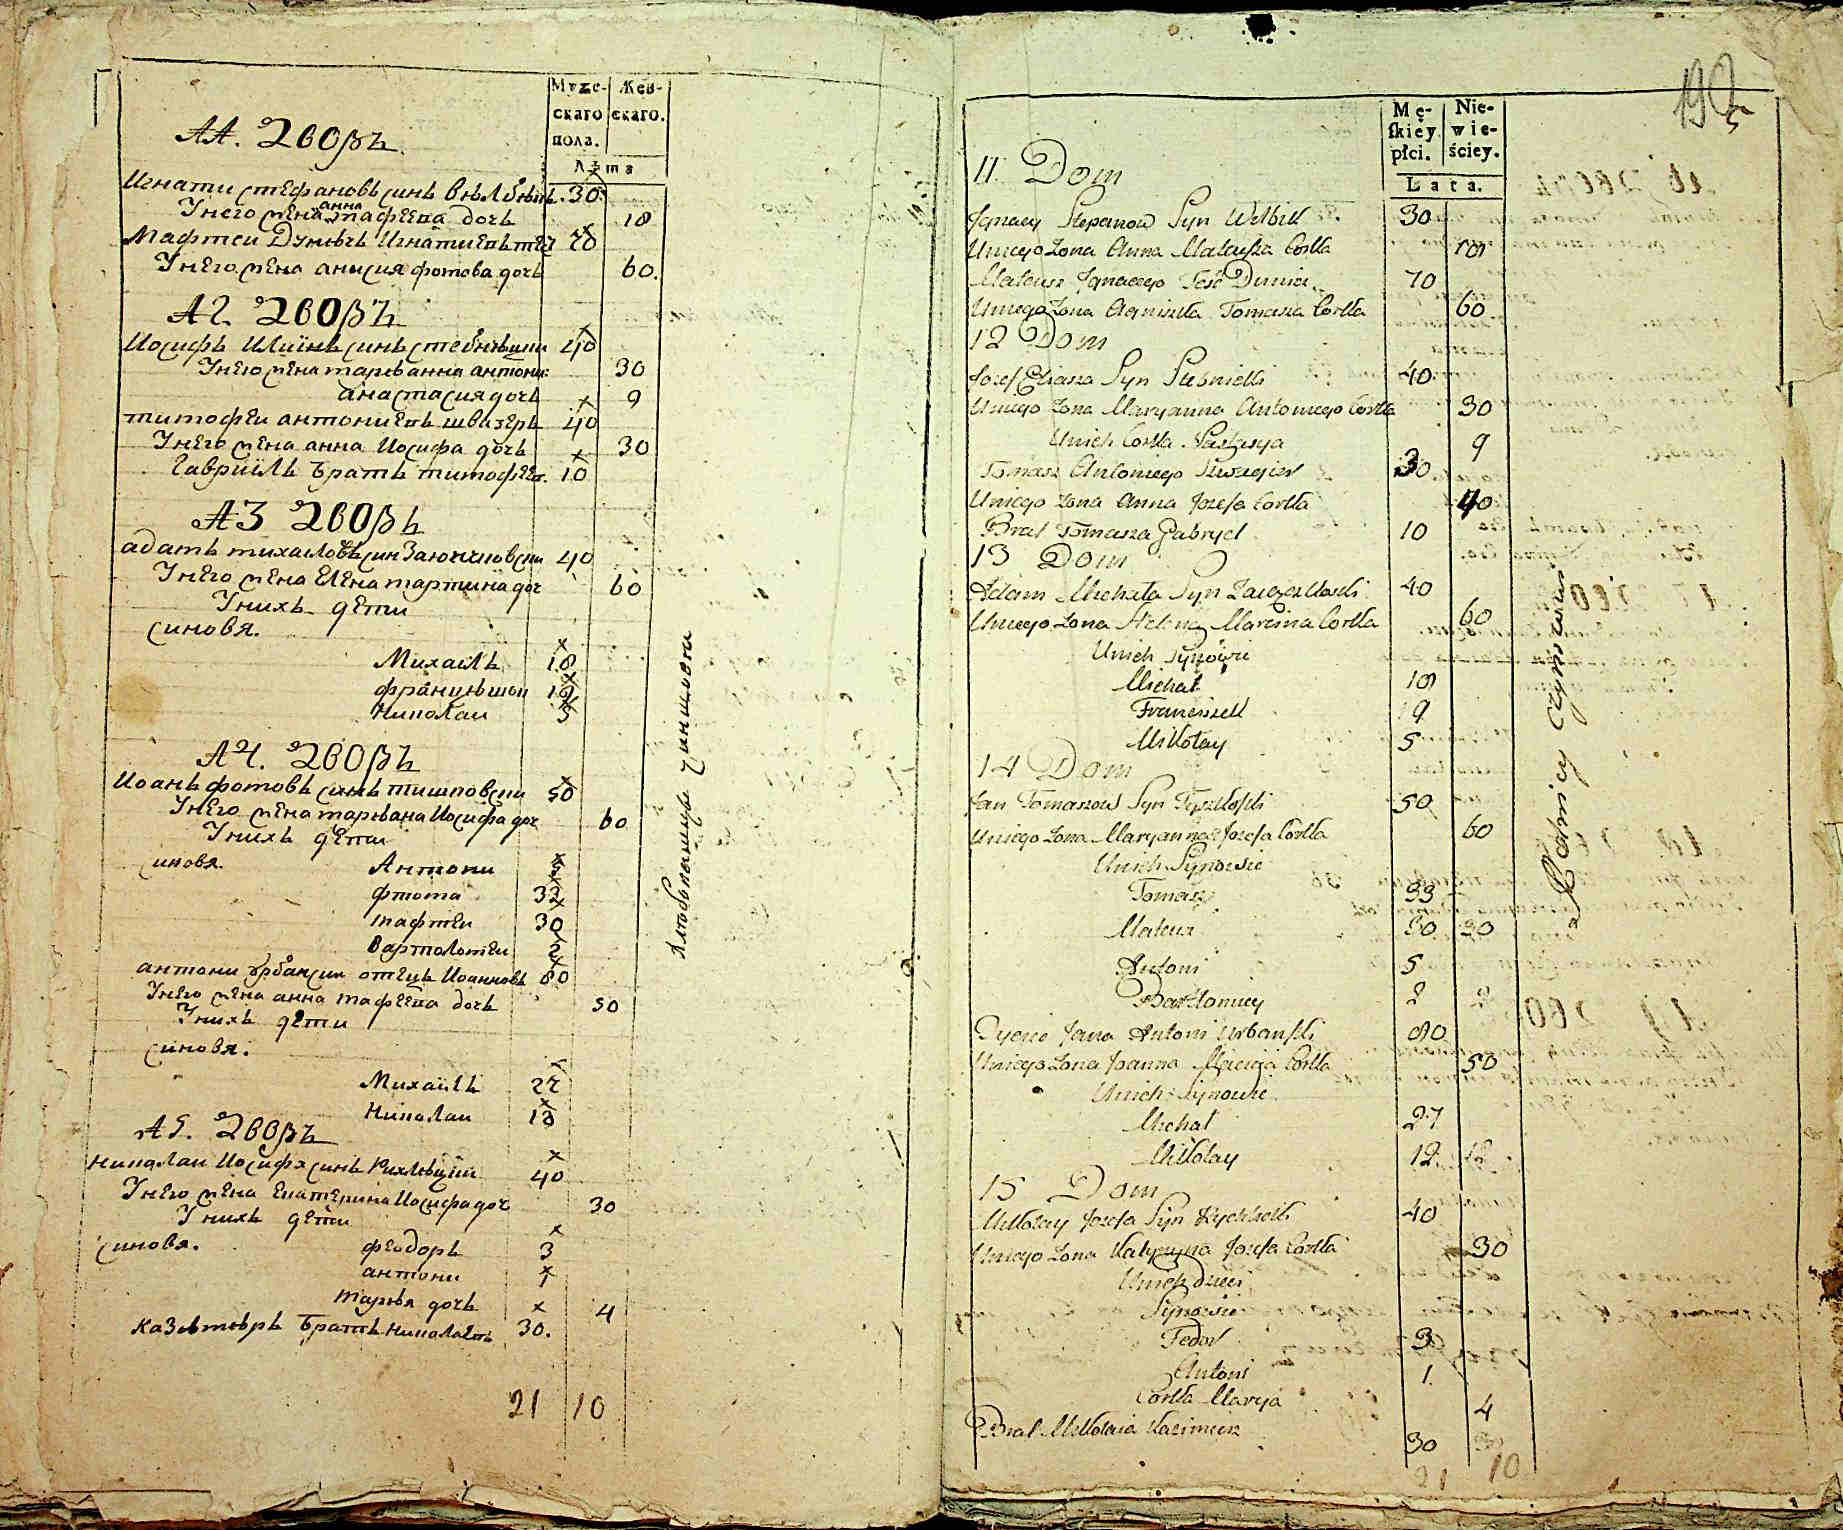 Мужескаго пола.
Женскаго.
Лѣта
АА. Дворъ
Игнати Стефановъ синъ Велбикъ 30
У него жена анна мафѣева дочь 18
Мафтеи Дунычъ Игнатиевъ тесть 70
У него жена анисия фомова дочь 60.
А2. Дворъ
Иосифъ Илиинъ синъ стебнѣцки 40
У него жена марианна антони: 30
анастасия дочь 9
тимофеи антониевъ швагеръ 40
У него жена анна Иосифа дочь 30
Гаврїилъ братъ тимофѣев. 10
А3 Дворъ
адамъ михаиловъ син Заюнчковски 40
У него жена Елена мартина доч 60
У нихъ дети
Синовя.
Михаилъ 18
францишки
Николаи 5
А4. Дворъ
Иоанъ фомовъ синъ тишковски 50
У него жена марияна Иосифа доч 60
У нихъ дети
Синовя Антони 5
фтома 32
мафтеи 30
Вартоломеи 2
антони Урбански отецъ Иоанновъ 80
У него жена анна мафѣева дочь 50
У нихъ дети
Синовя.
Михаилъ 27
Николаи 18
А5. Дворъ
Николаи Иосифа синъ Рихлѣцки 40
У него жена Екатерина Иосифа доч 30
У нихъ дети
Синовя. феодоръ 3
антони 1
Мария дочь 4
Казимѣръ братъ николаевъ 30.
21 10
192
Męſkiey płci.
Niewieściey.
Lata.
11. Dom
Jgnacy Stepanow Syn Welbik 30
Uniego Żona Anna Mateusza Corka 18
Mateusz Jgnacego Teść Dunicz 70
Uniego Żona Agniszka Tomasza Corka 60
12 Dom
Jozef Eliasza Syn Stebnicki 40
Uniego Żona Maryanna Antoniego Corka 30
Unich Corka Nastazya 9
Tomasz Antoniego Szwagier 30
Uniego Żona Anna Jozefa Corka 40
Brat Tomasza Gabryel 10
13 Dom
Adam Michała Syn Zaiączkoski 40
Uniego Żona Helena Marcina Corka 60
Unich Synowie
Michał 18
Franciszek 9
Mikołay 5
14 Dom
Jan Tomaszow Syn Tyszkoſki 50
Uniego Żona Maryanna Jozefa Corka 60
Unich Synowie
Tomasz 33
Mateusz 30
Antoni 5
Bartłomiey 2
Oyciec Jana Antoni Urbanſki 80
Uniego Żona Joanna Macieja Corka 50
Unich Synowie
Michał 27
Mikołay 12
15 Dom
Mikołay Jozefa Syn Rychlicki 40
Uniego Żona Katyrzyna Jozefa Corka 30
Unich Dzieci
Synowie
Fedor 3
Antoni 1.
Corka Marya 4
Brat Mikołaia Kazimierz 30
21 10
Kątnicy czynszowi